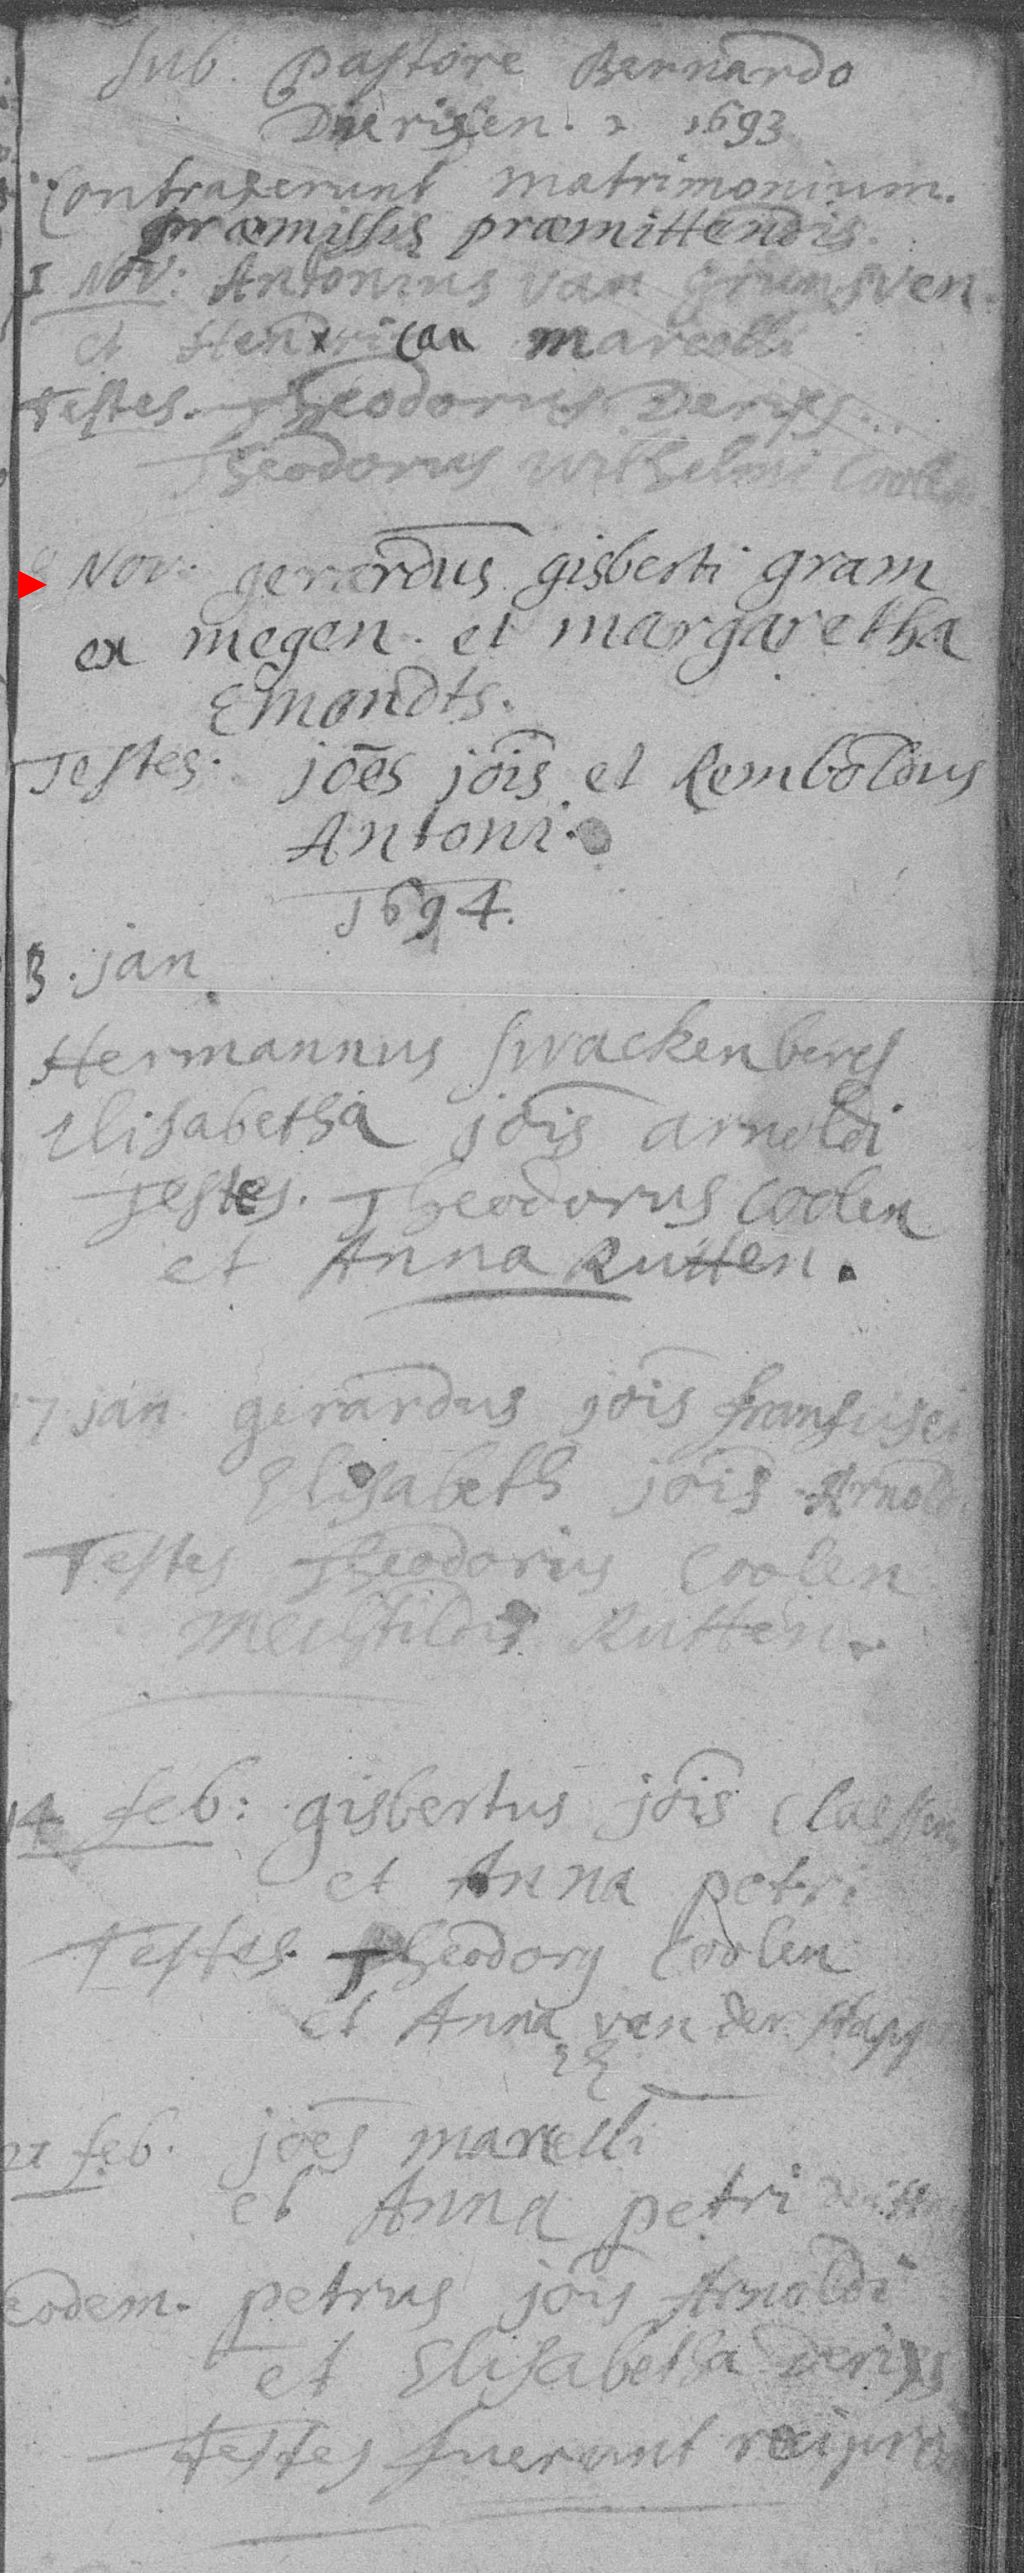 sub. pastore Bernardo
Dierixen. 1693
Contraxerunt matrimonium.
præmissis præmittendis.
1 Nov: Antonius van Grunsven
et Henri can marcelli
Testes. Theodorus Derixs
Theodorus wilhelmi Coolen
Nov. gerardus gisberti gram
ex megen. et margaretha
Emondts.
Testes. jões jois et Remboldus
Antoni.
1694.
3. jan
Hermannus swackenberg
Elisabetha jois arnoldi
Testes. Theodorus Coolen
et Anna Rutten.
7 jan. gerardus jois
Elisabeth jois Arnoldi
Testes Theodorus Coolen
Mechtildis Rutten.
14 feb: gisbertus jois Claessen
et Anna petri
Testes. Theodorg Coolen
et Anna van der stap
21 feb. joes marcelli
et Anna petri
eodem. petrus jois Arnoldi
et Elisabetha Derixs
Testes fuerunt